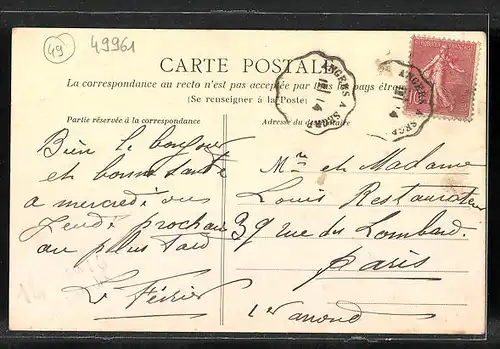 49
49961
CARTE POSTALE
La correspondance au recto n'est pas acceptée par tous les pays étran
(Se renseigner à la Poste)
Partie réservée à la correspondance
Adresse du destinataire
ANGERS A SEGRÉ
14
ANGERS SEGR
10
Bien le bonjour
et bonne santé
a mercredi ou
jeudi prochain
au plus tard
L. Février
Mr et Madame
Louis Restaurateur
39 rue du Lombard.
Paris
1er arrond